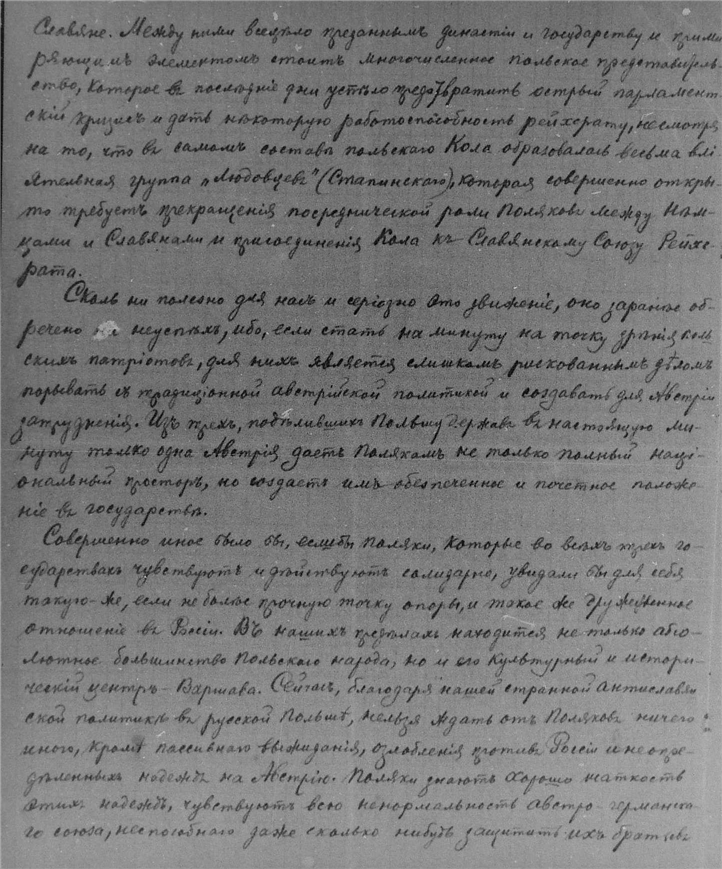 Славяне. Между ними всецѣло преданнымъ династіи и государству и прими
ряющимъ элементомъ стоитъ многочисленное польское представитель-
ство, которое въ послѣдніе дни успѣло предотвратить острый парламент-
скій кризисъ и дать нѣкоторую работоспособность рейхсрату, несмотря
на то, что въ самомъ составѣ польскаго Кола образовалась весьма влі
ятельная группа „Людовцевъ" (Стапинскаго), которая совершенно откры-
то требуетъ прекращенія посреднической роли Поляковъ между Нѣм-
цами и Славянами и присоединенія Кола къ Славянскому Союзу Рейхс-
рата.
Сколь ни полезно для насъ и серіозно это движеніе, оно заранѣе об-
речено на неуспѣхъ, ибо, если стать на минуту на точку зрѣнія поль
скихъ патріотовъ, для нихъ является слишкомъ рискованнымъ дѣломъ
порывать съ традиціонной австрійской политикой и создавать для Австріи
затрудненія. Изъ трехъ, подѣлившихъ Польшу державъ въ настоящую ми-
нуту только одна Австрія даетъ Полякамъ не только полный наці-
ональный просторъ, но создаетъ имъ обезпеченное и почетное положе-
ніе въ государствѣ.
Совершенно иное было бы, еслибы Поляки, которые во всѣхъ трехъ го-
сударствахъ чувствуютъ и дѣйствуютъ солидарно, увидали бы для себя
такую-же, если не болѣе прочную точку опоры, и такое же дружественное
отношеніе въ Россіи. Въ нашихъ предѣлахъ находится не только абсо-
лютное большинство польскаго народа, но и его культурный и истори-
ческій центръ - Варшава. Сейчасъ, благодаря нашей странной антиславян
ской политикѣ въ русской Польшѣ, нельзя ждать отъ Поляковъ ничего
иного, кромѣ пассивнаго выжиданія, озлобленія противъ Россіи и неопре-
дѣленныхъ надеждъ на Австрію. Поляки знаютъ хорошо шаткость
этихъ надеждъ, чувствуютъ всю ненормальность австро-германска-
го союза, неспособнаго даже сколько нибудь защитить ихъ братьевъ